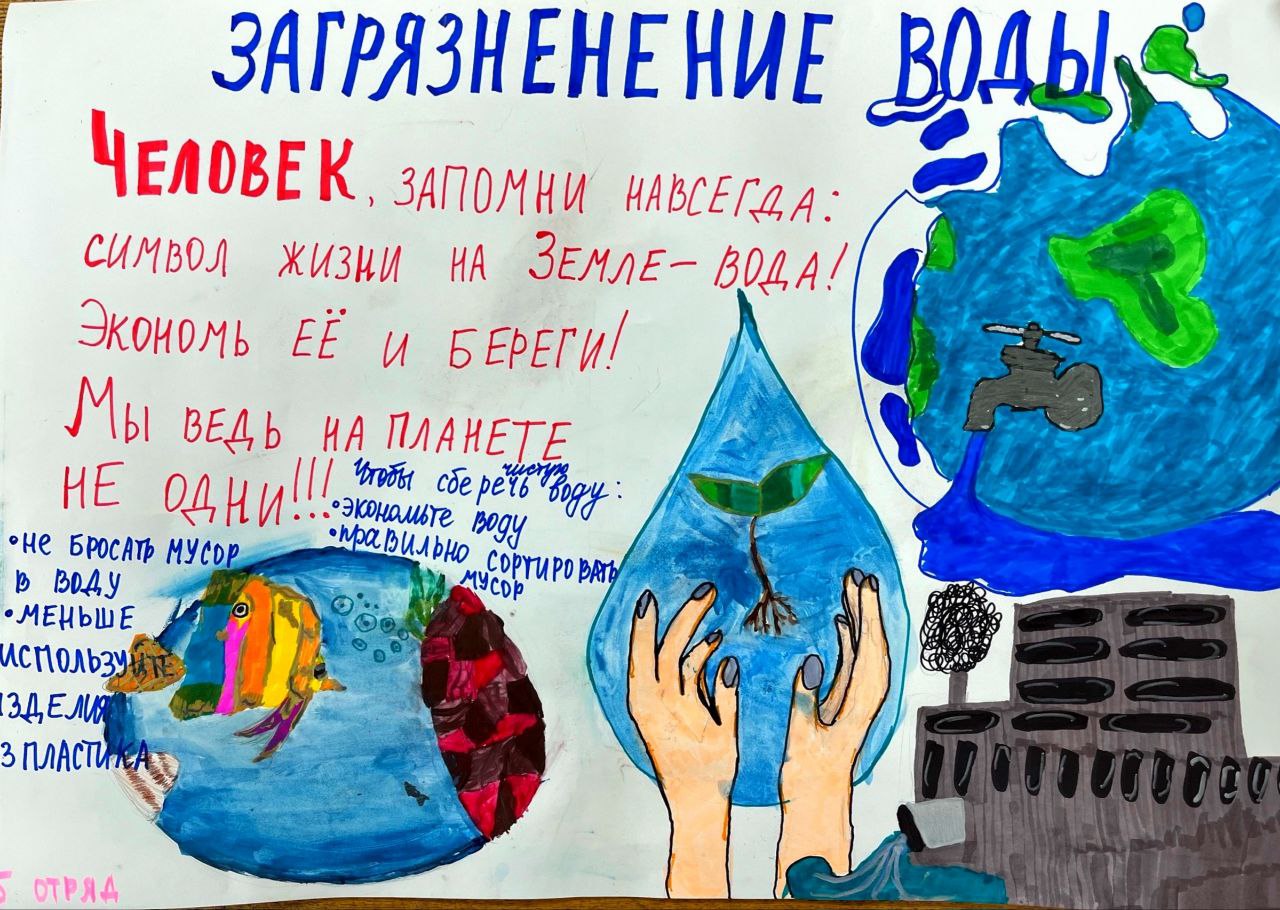 ЗАГРЯЗНЕНЕНИЕ ВОДЫ
ЧЕЛОВЕК, ЗАПОМНИ НАВСЕГДА:
СИМВОЛ ЖИЗНИ НА ЗЕМЛЕ - ВОДА!
ЭКОНОМЬ ЕЁ И БЕРЕГИ!
МЫ ВЕДЬ НА ПЛАНЕТЕ
НЕ ОДНИ!!!
Чтобы сберечь чистую воду:
•экономьте воду
•правильно сортировать
мусор
•НЕ БРОСАТЬ МУСОР
В ВОДУ
•МЕНЬШЕ
ИСПОЛЬЗУЙТЕ
ИЗДЕЛИЯ
ИЗ ПЛАСТИКА
5 ОТРЯД